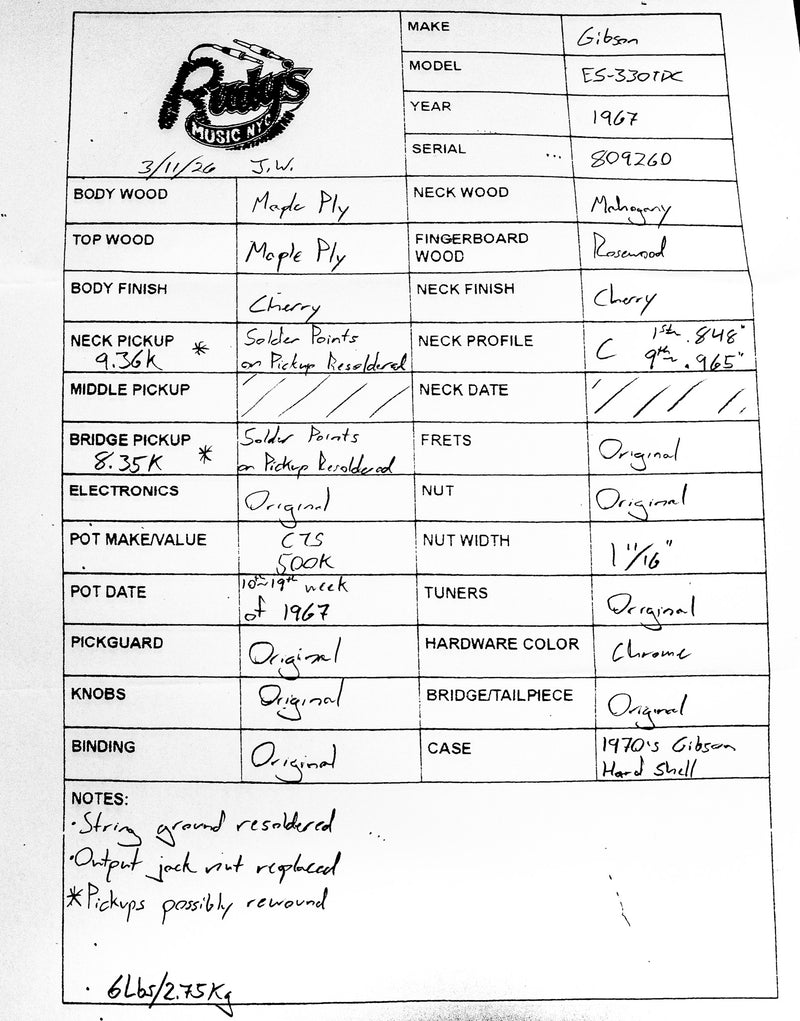 Rudy's
MUSIC NYC
3/11/26 J.W.
MAKE Gibson
MODEL ES-330TDC
YEAR 1967
SERIAL 809260
BODY WOOD Maple Ply NECK WOOD Mahogany
TOP WOOD Maple Ply FINGERBOARD WOOD Rosewood
BODY FINISH Cherry NECK FINISH Cherry
NECK PICKUP * Solder Points NECK PROFILE C 1st .848"
9.36K on Pickup Resoldered 9th .965"
MIDDLE PICKUP NECK DATE
BRIDGE PICKUP * Solder Points FRETS Original
8.35K on Pickup Resoldered
ELECTRONICS Original NUT Original
POT MAKE/VALUE CTS NUT WIDTH 1 11/16"
500K
POT DATE 10th-19th week TUNERS Original
of 1967
PICKGUARD Original HARDWARE COLOR Chrome
KNOBS Original BRIDGE/TAILPIECE Original
BINDING Original CASE 1970's Gibson
Hard Shell
NOTES:
· String ground resoldered
· Output jack nut replaced
* Pickups possibly rewound
· 6Lbs/2.75Kg